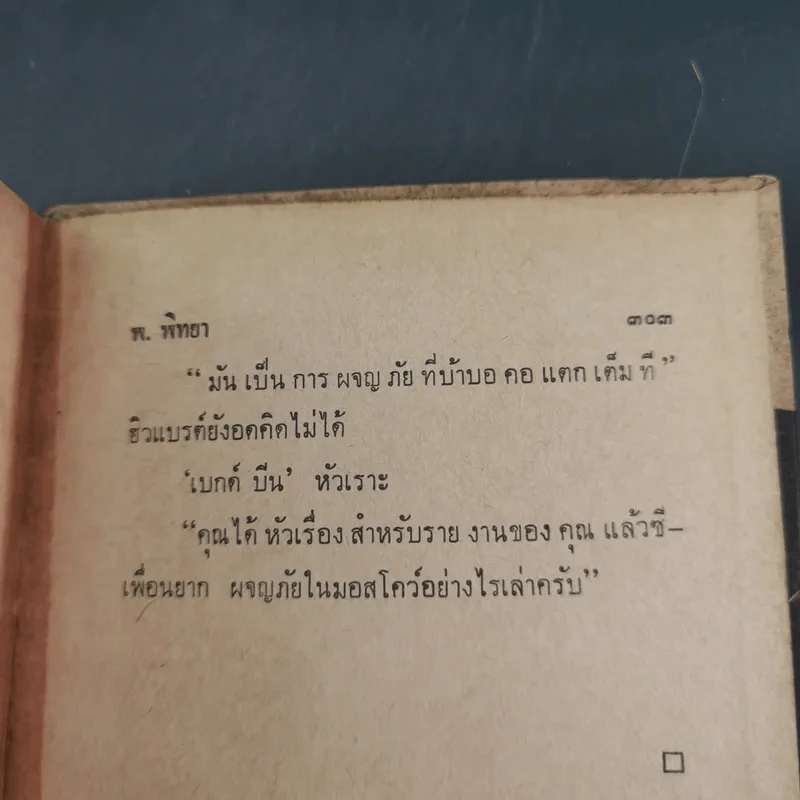 พ. พิทยา ๓๐๓
“ มัน เป็น การ ผจญ ภัย ที่บ้าบอ คอ แตก เต็ม ที ”
ฮิวแบรต์ยังอดคิดไม่ได้
‘เบกด์ บีน’ หัวเราะ
“คุณได้ หัวเรื่อง สำหรับราย งานของ คุณ แล้วซี–
เพื่อนยาก ผจญภัยในมอสโคว์อย่างไรเล่าครับ”